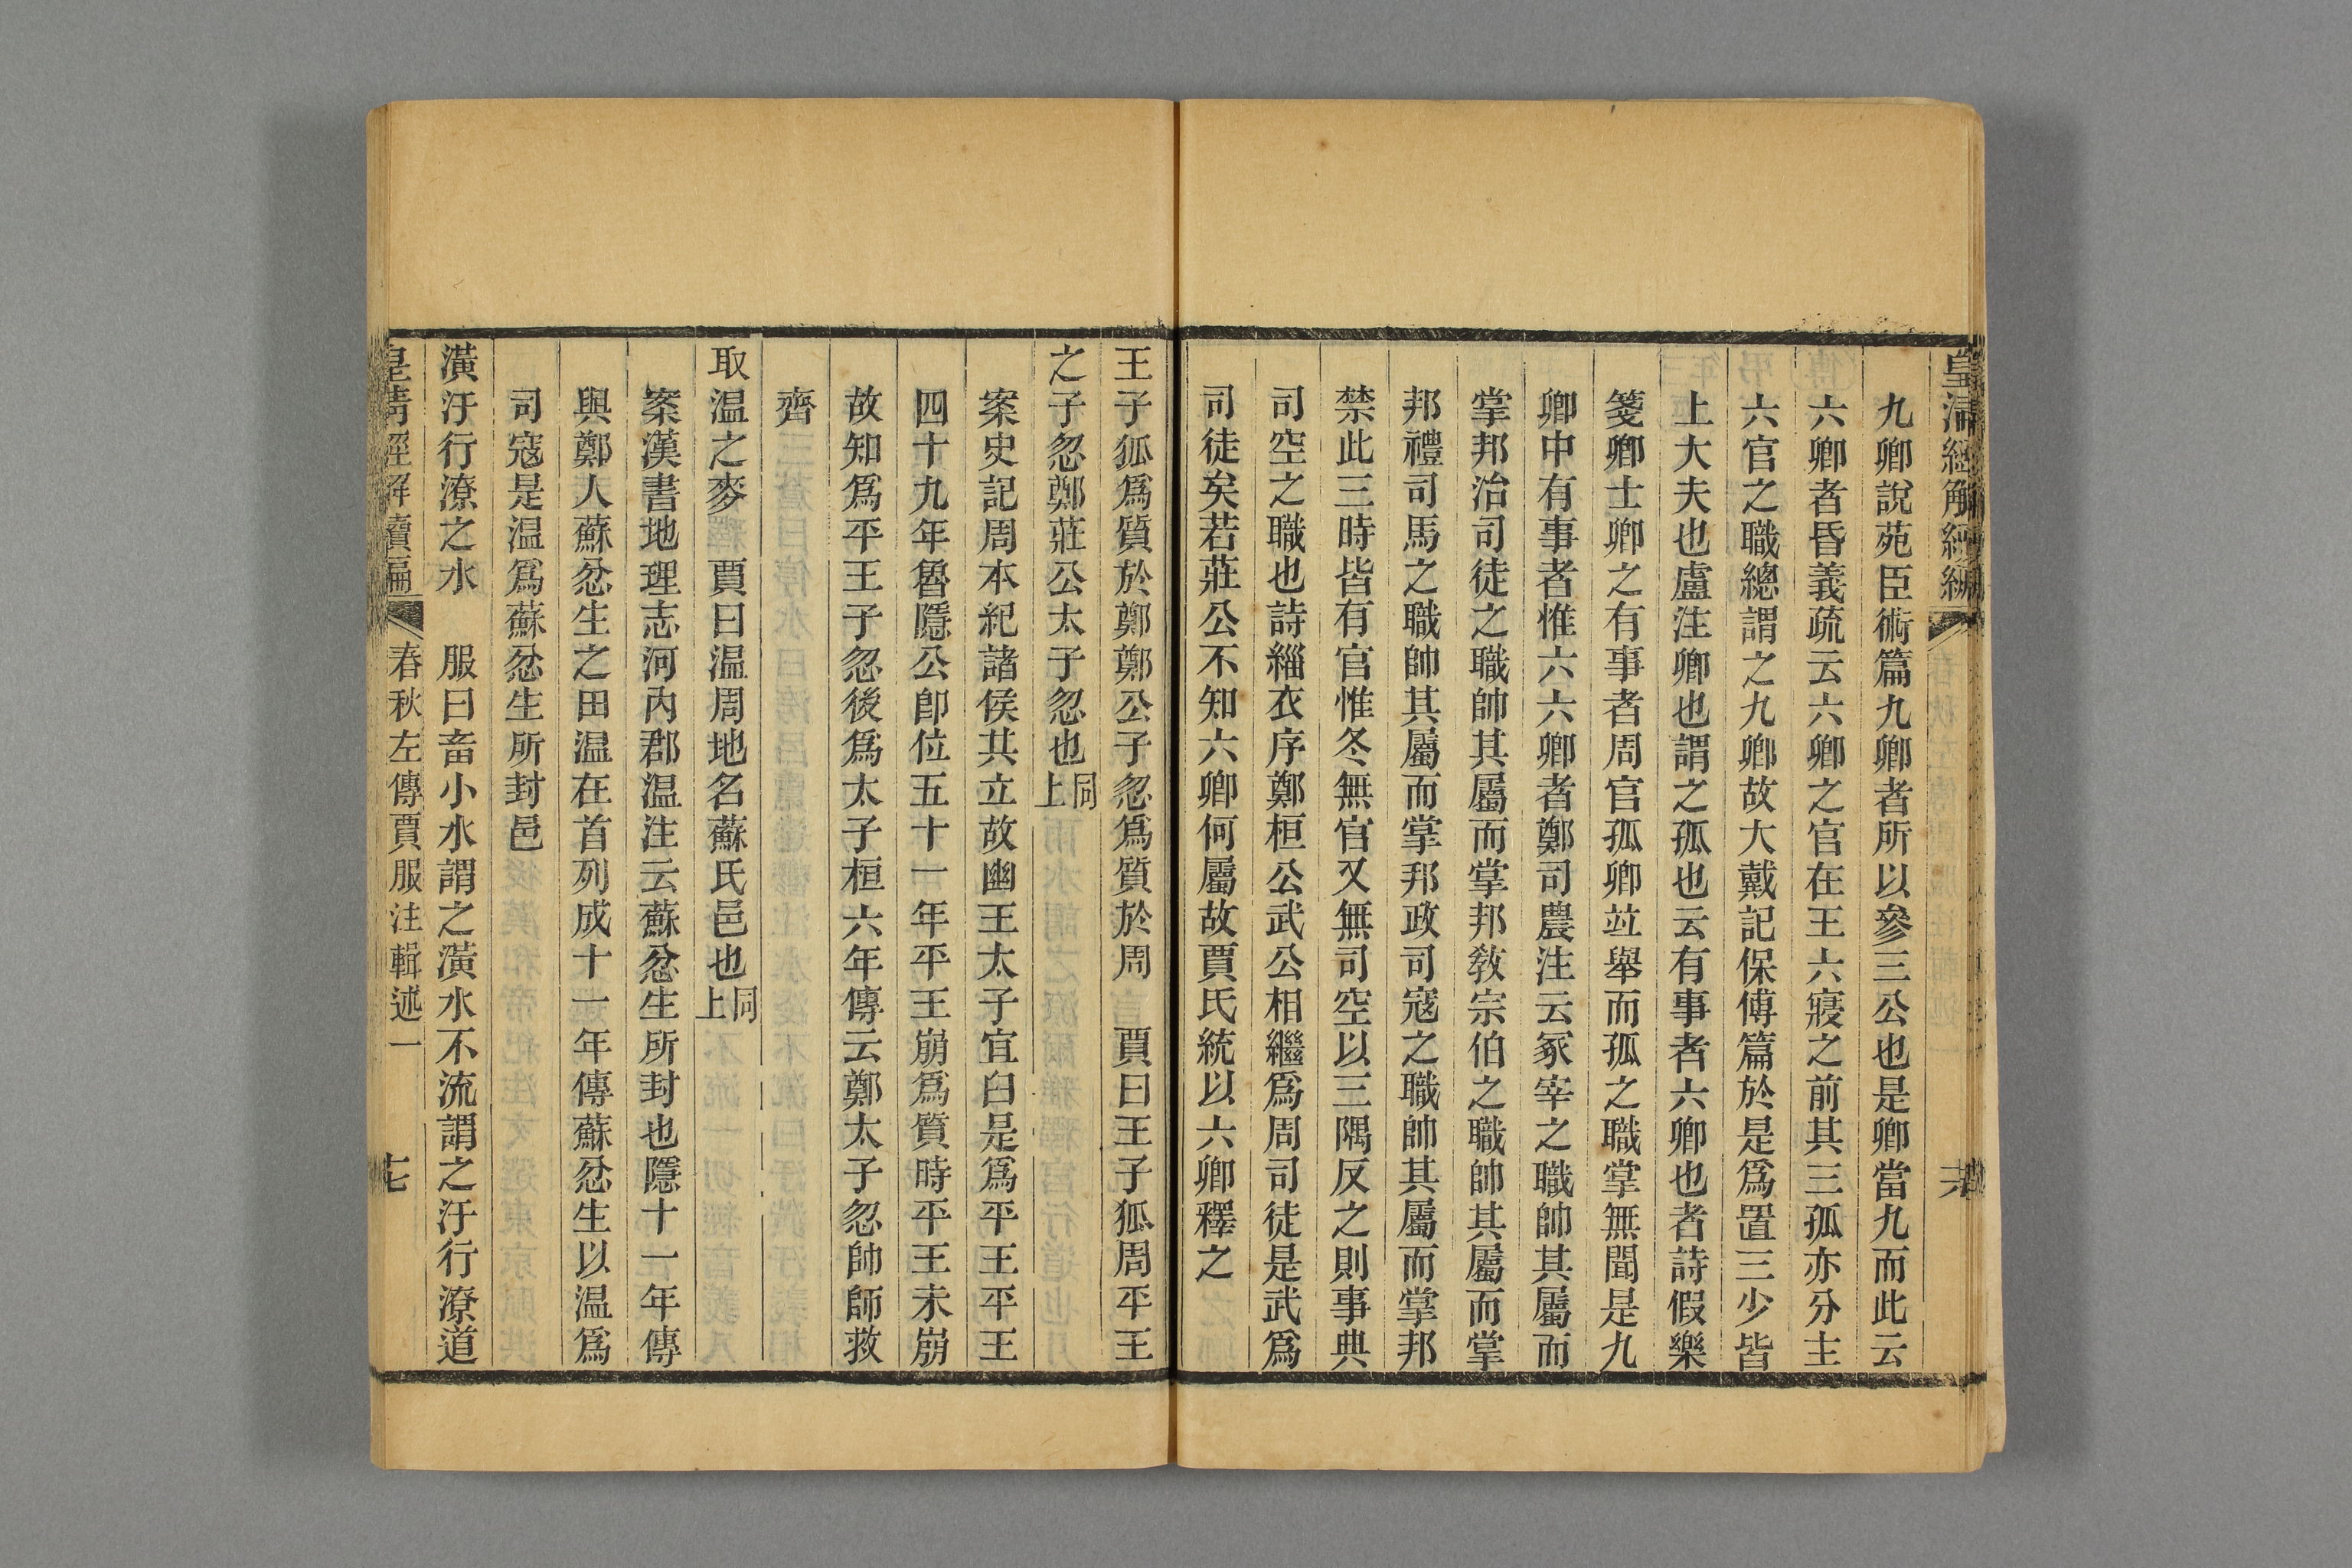 九卿說苑臣術篇九卿者所以參三公也是卿當九而此云
六卿者昏義疏云六卿之官在王六寢之前其三孤亦分主
六官之職總謂之九卿故大戴記保傅篇於是爲置三少皆
上大夫也盧注卿也謂之孤也云有事者六卿也者詩假樂
箋卿士卿之有事者周官孤卿竝舉而孤之職掌無聞是九
卿中有事者惟六六卿者鄭司農注云冢宰之職帥其屬而
掌邦治司徒之職帥其屬而掌邦敎宗伯之職帥其屬而掌
邦禮司馬之職帥其屬而掌邦政司寇之職帥其屬而掌邦
禁此三時皆有官惟冬無官又無司空以三隅反之則事典
司空之職也詩緇衣序鄭桓公武公相繼爲周司徒是武爲
司徒矣若莊公不知六卿何屬故賈氏統以六卿釋之
王子狐爲質於鄭鄭公子忽爲質於周　賈曰王子狐周平王
之子忽鄭莊公太子忽也同上
案史記周本紀諸侯其立故幽王太子宜臼是爲平王平王
四十九年魯隱公卽位五十一年平王崩爲質時平王未崩
故知爲平王子忽後爲太子桓六年傳云鄭太子忽帥師救
齊
取温之麥　賈曰温周地名蘇氏邑也同上
案漢書地理志河內郡温注云蘇忿生所封也隱十一年傳
與鄭人蘇忿生之田温在首列成十一年傳蘇忿生以温爲
司寇是温爲蘇忿生所封邑
潢汙行潦之水　服曰畜小水謂之潢水不流謂之汙行潦道
皇清經解續編　春秋左傳賈服注輯述一　七